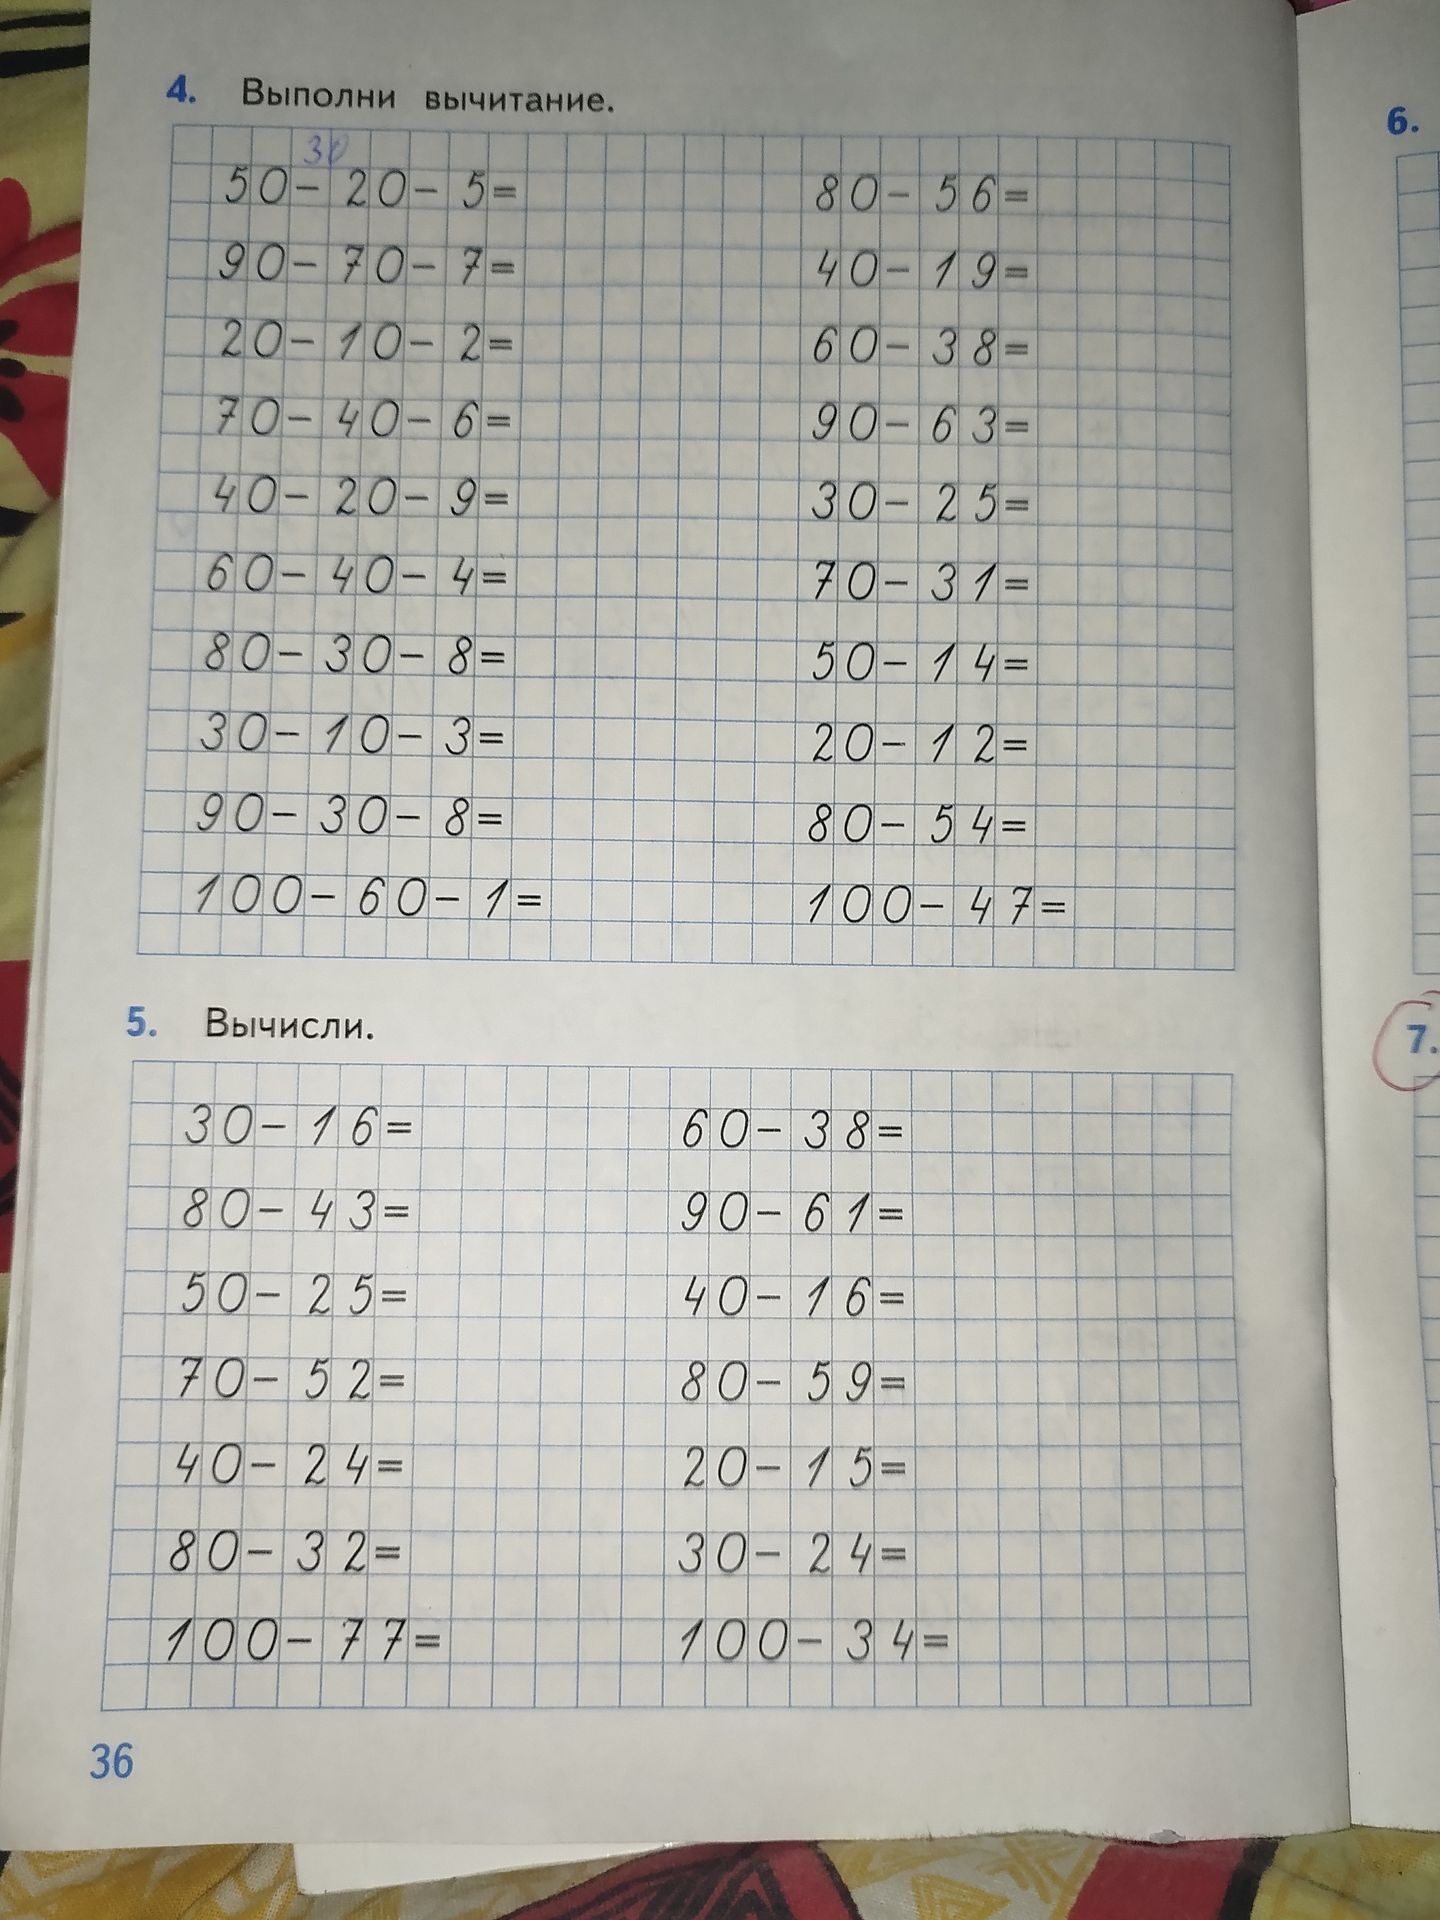 4. Выполни вычитание.
30
50-20-5=
90-70-7=
20-10-2=
70-40-6=
40-20-9=
60-40-4=
80-30-8=
30-10-3=
90-30-8=
100-60-1=
80-56=
40-19=
60-38=
90-63=
30-25=
70-31=
50-14=
20-12=
80-54=
100-47=
5. Вычисли.
30-16=
80-43=
50-25=
70-52=
40-24=
80-32=
100-77=
60-38=
90-61=
40-16=
80-59=
20-15=
30-24=
100-34=
36
6.
7.